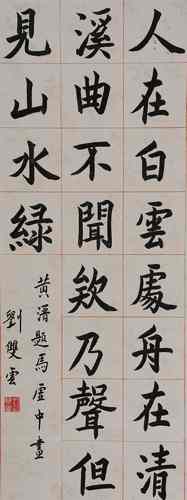 人在白雲處舟在清
溪曲不聞欸乃聲但
見山水綠
黃溍題馬虛中畫
劉雙雲